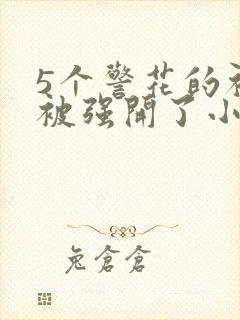 5个警花的被
被强開了小
兔倉倉